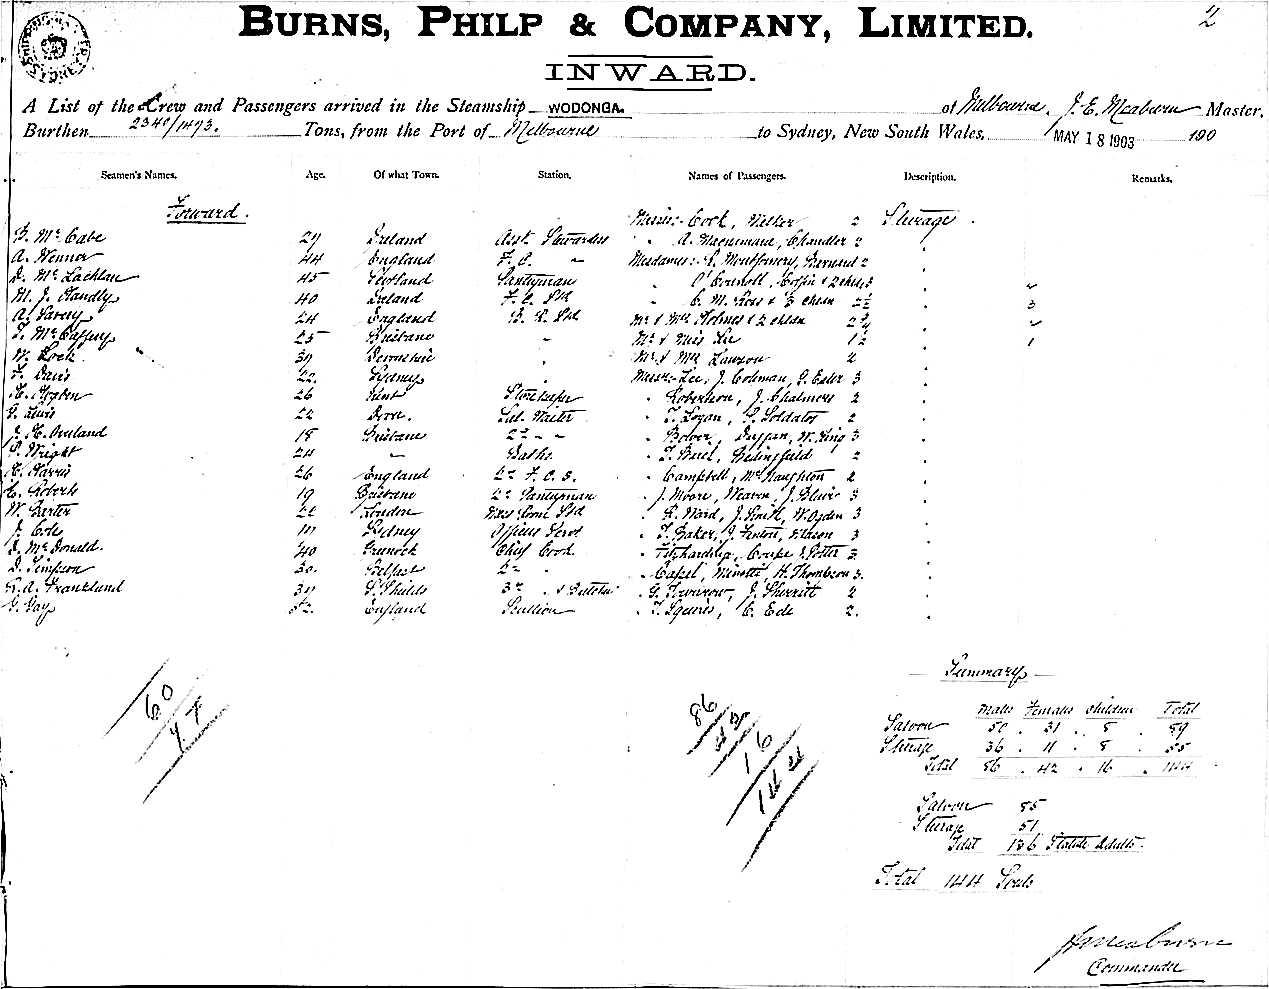 BURNS, PHILP & COMPANY, LIMITED. 2
INWARD.
A List of the Crew and Passengers arrived in the Steamship WODONGA. of Melbourne, J. E. Meaburn Master,
Burthen 2340/1473. Tons, from the Port of Melbourne to Sydney, New South Wales, MAY 18 1903 190
Seamen's Names. Age. Of what Town. Station. Names of Passengers. Description. Remarks.
Forward. Misses:- Cock, 2 Steerage
B. McCabe 27 Ireland Asst. Stewardess " A. Chandler 2 "
A. Wenner 44 England F. C. " Mesdames:- Montgomery, Barnard 2
D. McLachlan 45 Scotland Pantryman " O'Connell, Coffin & 2 chldn 3
M. J. Handly 40 Ireland F. C. Std " C. M. Ross & 3 chldn 2½ 3
A. Savey 24 England B. R. Std Mr & Mrs Holmes & 2 chldn
T. McCaffery 25 Brisbane " Mr & Miss Lee 1½ 1
W. Lock 37 Devonshire " Mr & Mrs Lawson 2
F. Davis 22 Sydney " Messrs:- Lee, J. Coleman, G. Exler 3
H. Hogben 26 Kent Storekeeper " Robertson, J. Chalmers 2
G. Lewis 22 Sal. Waiter " T. Logan, Soldatos 2
J. H. Overland 18 Brisbane 2nd " " " Bower, W. King 3
P. Wright 24 " Baths " T. Bedingfield 2
H. Harris 26 England 2nd F. C. S. " Campbell, McNaughton 2
C. Roberts 19 Brisbane 2nd Pantryman " J. Moore, Hearn, 3
W. Porter 22 London Mess Room Std " R. Ward, J. Smith, W. Ogden 3
J. Cole 17 Sydney Officers Servt " T. Baker, J. Fenton, Mason 3
D. McDonald. 40 Greenock Chief Cook " Fitzhardinge, Coupe & Potter 3
D. Simpson 30. Belfast 2nd " " Capel, Minotti, H. Thompson 3.
R. A. Frankland 37 S. Shields 3rd " & Butcher " G. J. Sherritt 2
G. Gay 52. England Scullion " T. Squires, C. Ede 2.
Summary
Males Females Children Total
Saloon 50 . 31 . 8 . 89
Steerage 36 . 11 . 8 . 55
Total 86 . 42 . 16 . 144
60
47
86
42
16
144
Saloon 85
Steerage 51
Total 136 Statute Adults.
Total 144 Souls
J. E. Meaburn
Commander